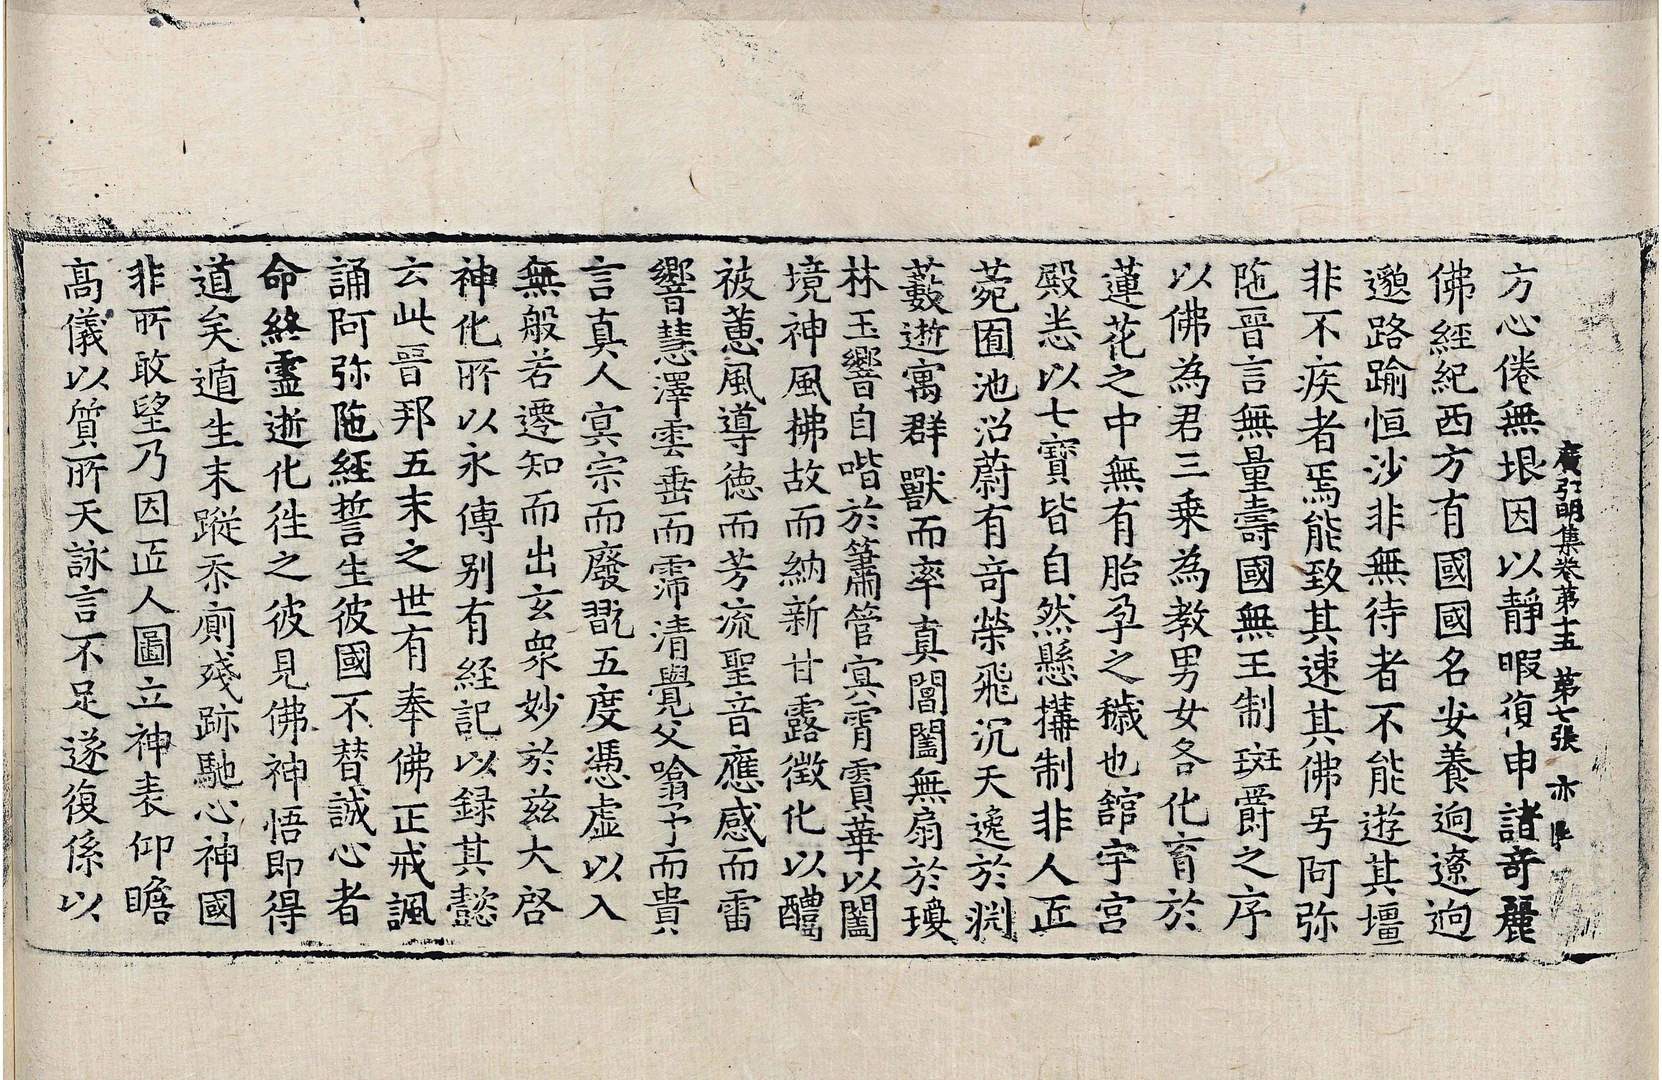 廣弘明集卷第十五　第七張　亦
方心倦無垠因以靜暇復申諸竒麗
佛經紀西方有國國名安養逈遼逈
邈路踰恒沙非無待者不能遊其壃
非不疾者焉能致其速其佛号阿弥
陁晉言無量壽國無王制班爵之序
以佛為君三乗為教男女各化育於
蓮花之中無有胎孕之穢也舘宇宮
殿悉以七寶皆自然懸搆制非人匠
菀囿池沼蔚有竒榮飛沉天逸於渕
藪逝寓群獸而率真閶闔無扇於瓊
林玉響自喈於簫管㝠霄霣華以闔
境神風拂故而納新甘露徵化以醴
被蕙風導徳而芳流聖音應感而雷
響慧澤雲垂而霈清覺父喻予而貴
言真人㝠宗而廢翫五度憑虛以入
無般若遷知而出玄衆妙於兹大启
神化所以永傳别有経記以録其懿
云此晉邦五末之世有奉佛正戒諷
誦阿弥陁経誓生彼國不替誠心者
命終霊逝化徃之彼見佛神悟即得
道矣遁生末蹤忝廁殘跡馳心神國
非所敢望乃因匠人圖立神表仰瞻
高儀以質所天詠言不足遂復係以